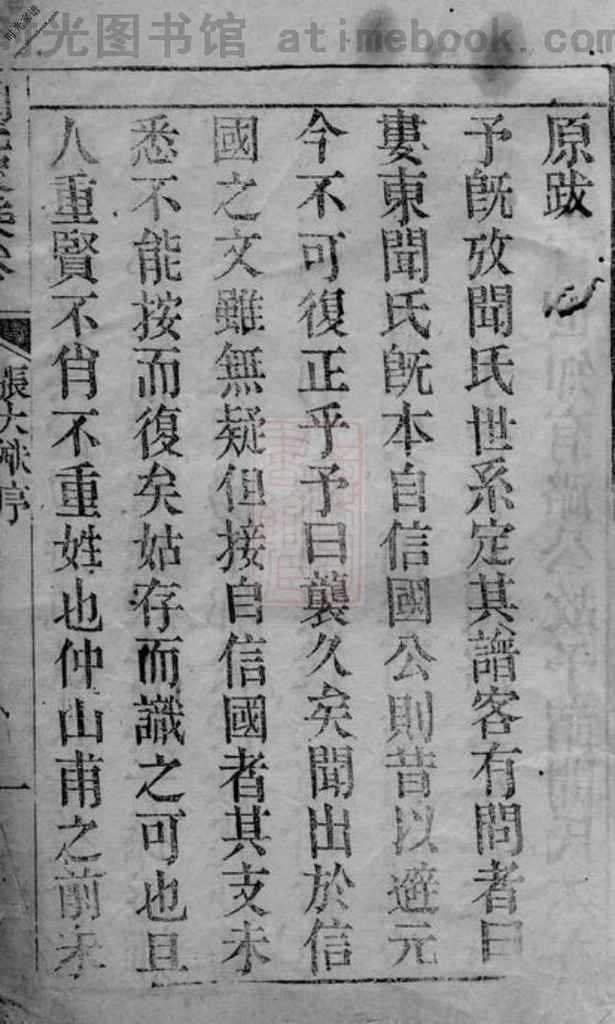 时光图书馆 atimebook.com
原跋
予旣攷聞氏世系定其譜客有問者曰
婁東聞氏旣本自信國公則昔以避元
今不可復正乎予曰襲久矣聞出於信
國之文雖無疑但接自信國者其支未
悉不能按而復矣姑存而識之可也且
人重賢不肖不重姓也仲山甫之前未
張大猷序
一